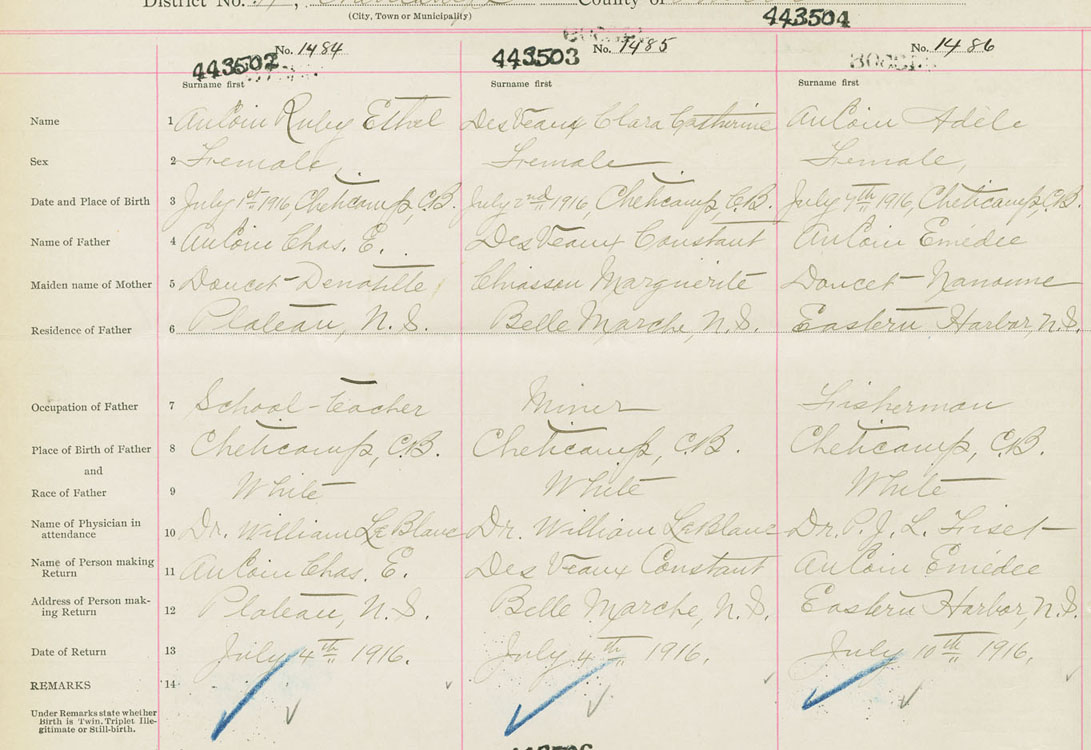 District No. County of
(City, Town or Municipality)
443504
No. 1484
No. 1485
No. 1486
443502
443503
Surname first
Surname first
Surname first
Name 1 AuCoin Ruby Ethel DesVeaux Clara Catherine AuCoin Adèle
Sex 2 Female, Female Female,
Date and Place of Birth 3 July 1st 1916, Cheticamp, C.B. July 2nd 1916, Cheticamp, C.B. July 7th 1916, Cheticamp, C.B.
Name of Father 4 AuCoin Chas. E. DesVeaux Constant AuCoin Emédée
Maiden name of Mother 5 Doucet Chiasson Marguerite Doucet Nanonne
Residence of Father 6 Plateau, N.S. Belle Marche, N.S. Eastern Harbor, N.S.
Occupation of Father 7 School-teacher Miner Fisherman
Place of Birth of Father 8 Cheticamp, C.B. Cheticamp, C.B. Cheticamp, C.B.
and
Race of Father 9 White White White
Name of Physician in
attendance 10 Dr. William LeBlanc Dr. William LeBlanc Dr. P. J. L. Fiset
Name of Person making
Return 11 AuCoin Chas. E. Des Veaux Constant AuCoin Emédée
Address of Person mak-
ing Return 12 Plateau, N.S. Belle Marche, N.S. Eastern Harbor, N.S.
Date of Return 13 July 4th 1916. July 4th 1916. July 10th 1916.
REMARKS 14
Under Remarks state whether
Birth is Twin, Triplet Ille-
gitimate or Still-birth.